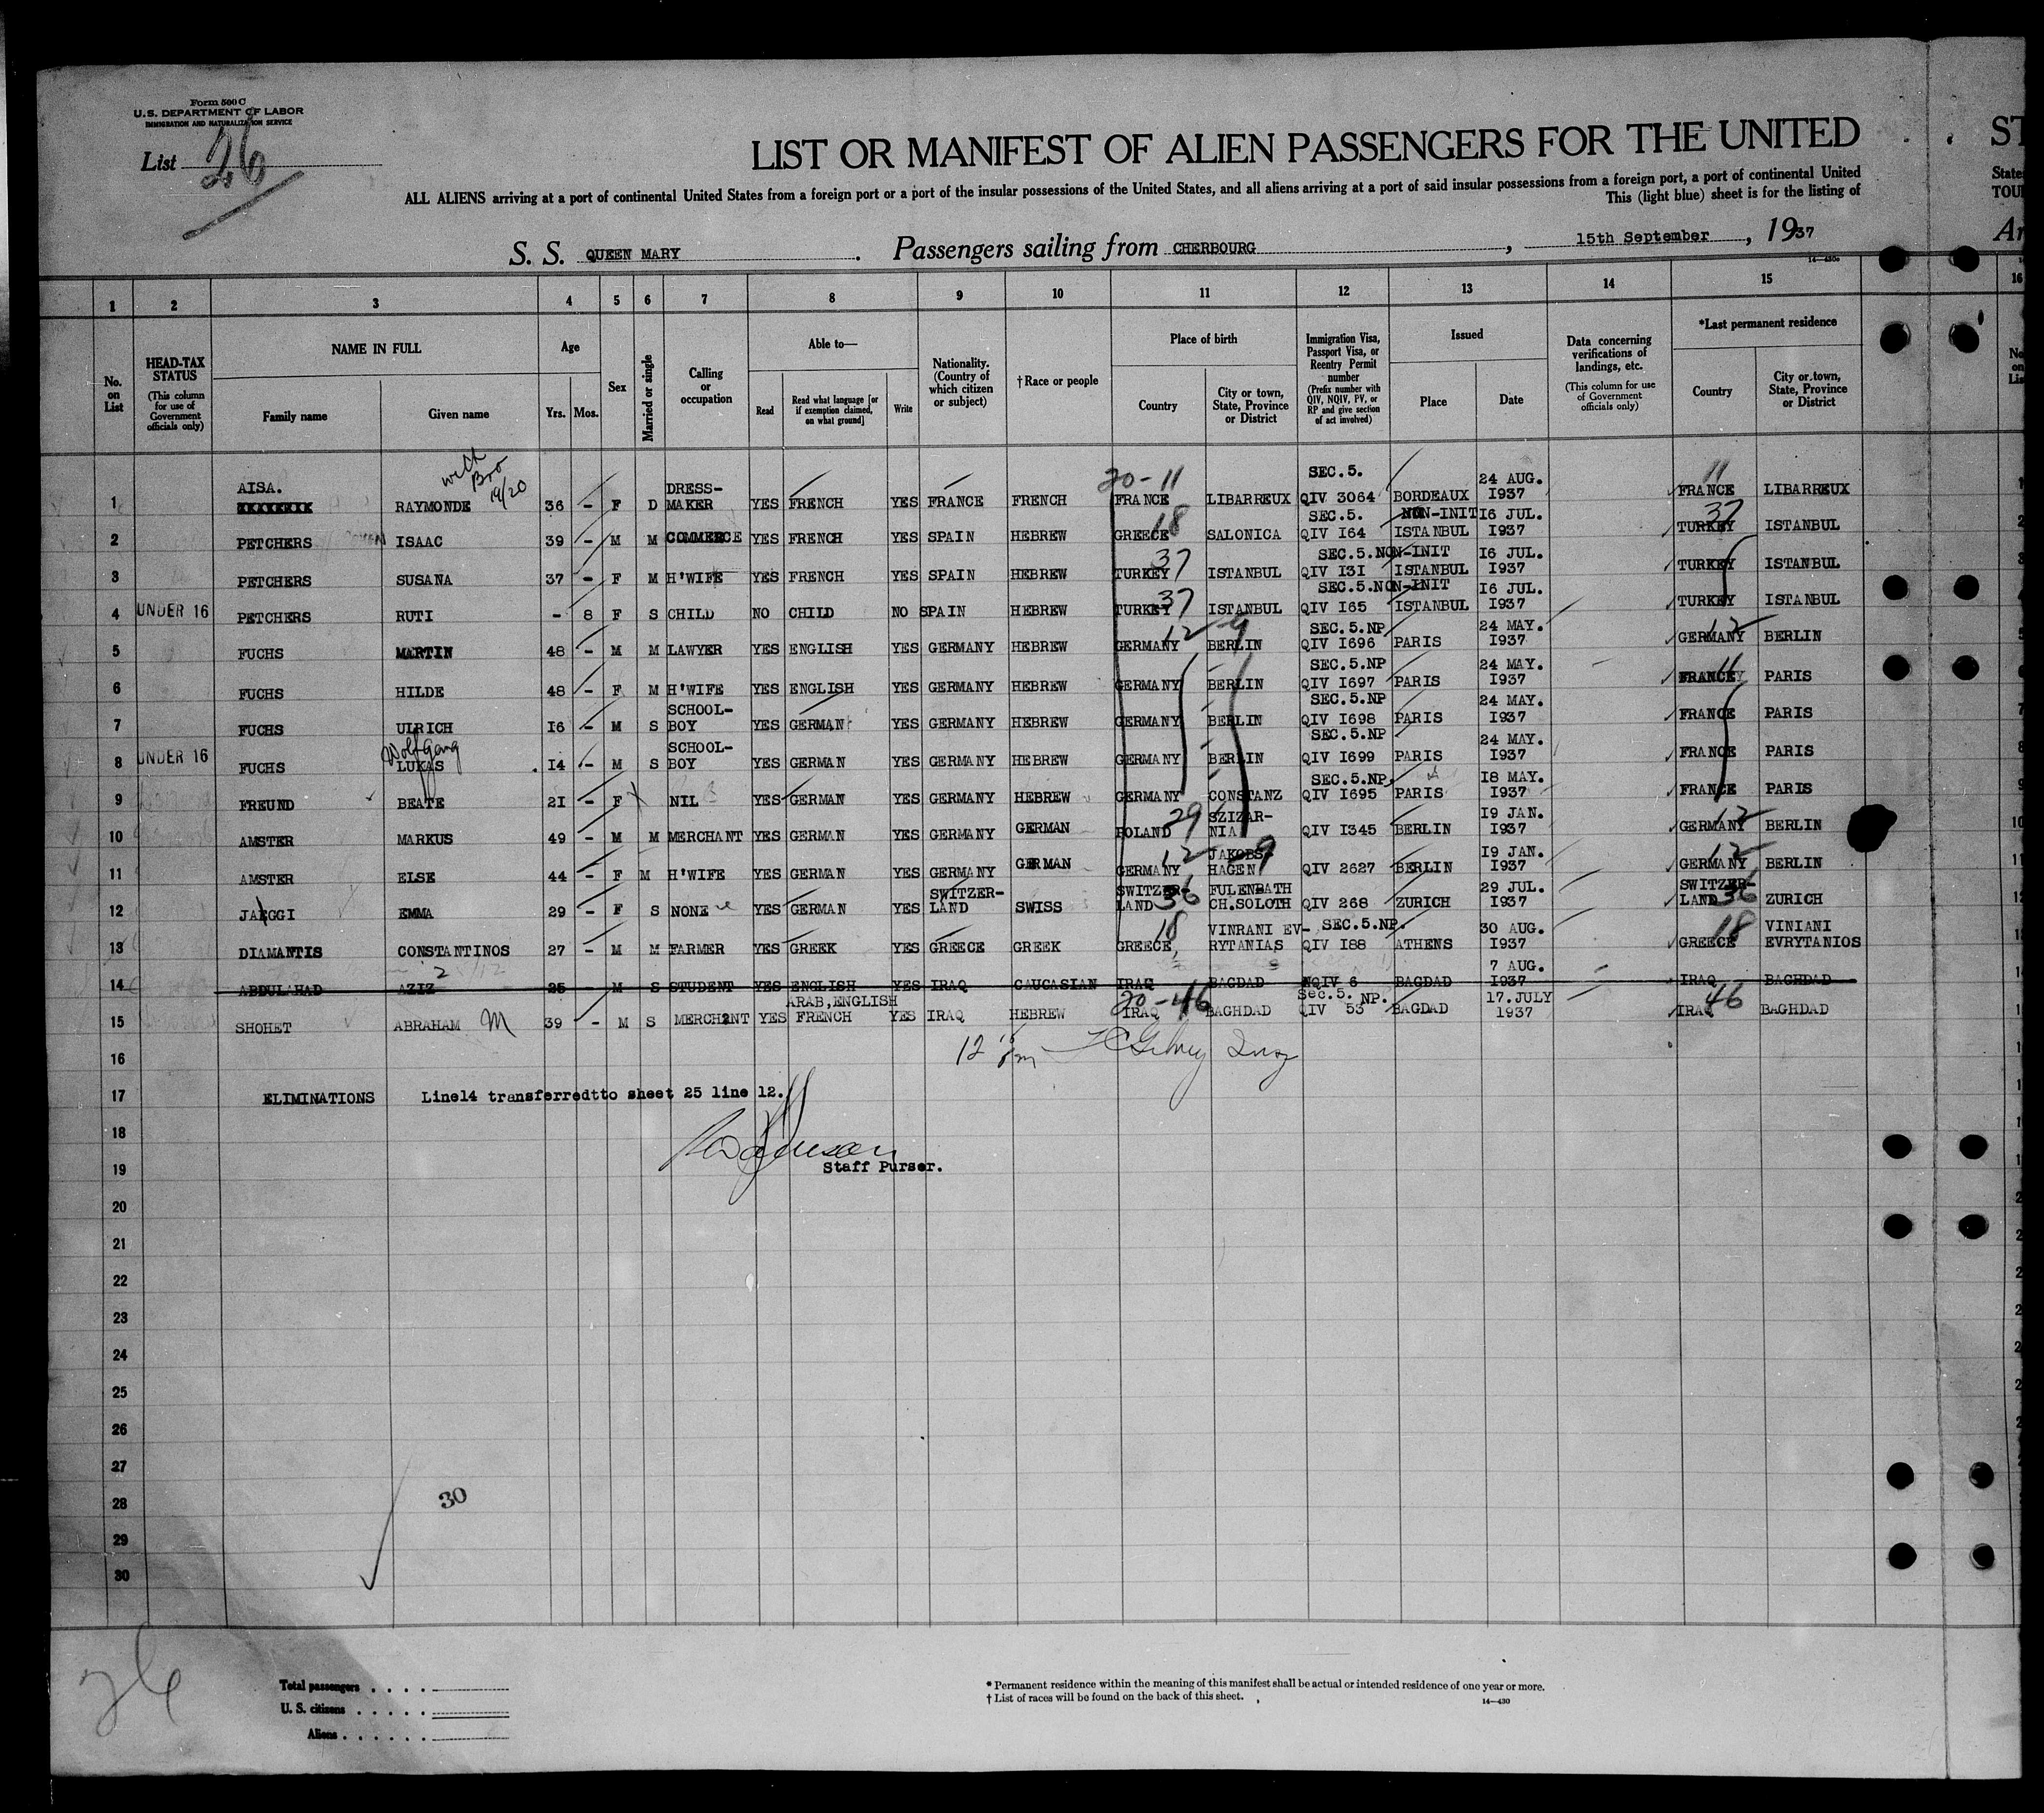 Form 500 C
U.S. DEPARTMENT OF LABOR
IMMIGRATION AND NATURALIZATION SERVICE
List 26
LIST OR MANIFEST OF ALIEN PASSENGERS FOR THE UNITED ST
ALL ALIENS arriving at a port of continental United States from a foreign port or a port of the insular possessions of the United States, and all aliens arriving at a port of said insular possessions from a foreign port, a port of continental United State
This (light blue) sheet is for the listing of TOU
S. S. QUEEN MARY. Passengers sailing from CHERBOURG, 15th September, 1937 Ar
1 2 3 4 5 6 7 8 9 10 11 12 13 14 15 16
No. on List
HEAD-TAX STATUS (This column for use of Government officials only)
NAME IN FULL Family name Given name
Age Yrs. Mos.
Sex
Married or single
Calling or occupation
Able to— Read Read what language [or if exemption claimed, on what ground] Write
Nationality. (Country of which citizen or subject)
†Race or people
Place of birth Country City or town, State, Province or District
Immigration Visa, Passport Visa, or Reentry Permit number (Prefix number with QIV, NQIV, PV, or RP and give section of act involved)
Issued Place Date
Data concerning verifications of landings, etc. (This column for use of Government officials only)
*Last permanent residence Country City or town, State, Province or District
with Bro 19/20
1 AISA. XXXXXXXX RAYMONDE 36 - F D DRESS-MAKER YES FRENCH YES FRANCE FRENCH 20-11 FRANCE LIBARREUX SEC.5. QIV 3064 BORDEAUX 24 AUG. I937 11 FRANCE LIBARREUX 1
2 PETCHERS ISAAC 39 - M M COMMERCE YES FRENCH YES SPAIN HEBREW GREECE 18 SALONICA SEC.5. NON-INIT QIV I64 ISTANBUL I6 JUL. I937 37 TURKEY ISTANBUL 2
3 PETCHERS SUSANA 37 - F M H'WIFE YES FRENCH YES SPAIN HEBREW TURKEY 37 ISTANBUL SEC.5.NON-INIT QIV I3I ISTANBUL I6 JUL. I937 TURKEY ISTANBUL
4 UNDER 16 PETCHERS RUTI - 8 F S CHILD NO CHILD NO SPAIN HEBREW TURKEY 37 ISTANBUL SEC.5.NON-INIT QIV I65 ISTANBUL I6 JUL. I937 TURKEY ISTANBUL
5 FUCHS MARTIN 48 - M M LAWYER YES ENGLISH YES GERMANY HEBREW GERMANY 12-9 BERLIN SEC.5.NP QIV I696 PARIS 24 MAY. I937 GERMANY 12 BERLIN 5
6 FUCHS HILDE 48 - F M H'WIFE YES ENGLISH YES GERMANY HEBREW GERMANY BERLIN SEC.5.NP QIV I697 PARIS 24 MAY. I937 FRANCE 11 PARIS
7 FUCHS ULRICH I6 - M S SCHOOL-BOY YES GERMAN YES GERMANY HEBREW GERMANY BERLIN SEC.5.NP QIV I698 PARIS 24 MAY. I937 FRANCE PARIS 7
8 UNDER 16 FUCHS Wolfgang LUKAS I4 - M S SCHOOL-BOY YES GERMAN YES GERMANY HEBREW GERMANY BERLIN SEC.5.NP QIV I699 PARIS 24 MAY. I937 FRANCE PARIS 8
9 FREUND BEATE 2I - F NIL YES GERMAN YES GERMANY HEBREW GERMANY CONSTANZ SEC.5.NP. QIV I695 PARIS I8 MAY. I937 FRANCE PARIS 9
10 AMSTER MARKUS 49 - M M MERCHANT YES GERMAN YES GERMANY GERMAN POLAND 29 SZIZAR-NIA QIV I345 BERLIN I9 JAN. I937 GERMANY 12 BERLIN 10
11 AMSTER ELSE 44 - F M H'WIFE YES GERMAN YES GERMANY GERMAN GERMANY 12-9 JAKOBS-HAGEN QIV 2627 BERLIN I9 JAN. I937 GERMANY 12 BERLIN 11
12 JAEGGI EMMA 29 - F S NONE YES GERMAN YES SWITZER-LAND SWISS SWITZER-LAND 36 FULENBATH CH.SOLOTH QIV 268 ZURICH 29 JUL. I937 SWITZER-LAND 36 ZURICH 12
13 DIAMANTIS CONSTANTINOS 27 - M M FARMER YES GREEK YES GREECE GREEK GREECE, 18 VINRANI EV-RYTANIAS SEC.5.NP. QIV I88 ATHENS 30 AUG. I937 GREECE 18 VINIANI EVRYTANIOS
14 ABDULAHAD AZIZ 25 - M S STUDENT YES ENGLISH YES IRAQ CAUCASIAN IRAQ BAGDAD NQIV 6 BAGDAD 7 AUG. I937 IRAQ BAGHDAD
15 SHOHET ABRAHAM M 39 - M S MERCHANT YES ARAB,ENGLISH FRENCH YES IRAQ HEBREW 20-46 IRAQ BAGHDAD Sec.5. NP. QIV 53 BAGDAD 17.JULY 1937 IRAQ 46 BAGHDAD
16
17 ELIMINATIONS Line14 transferredtto sheet 25 line 12.
18
19 Staff Purser.
20
21
22
23
24
25
26
27
28 30
29
30
26
Total passengers
U. S. citizens
Aliens
* Permanent residence within the meaning of this manifest shall be actual or intended residence of one year or more.
† List of races will be found on the back of this sheet.
14—430